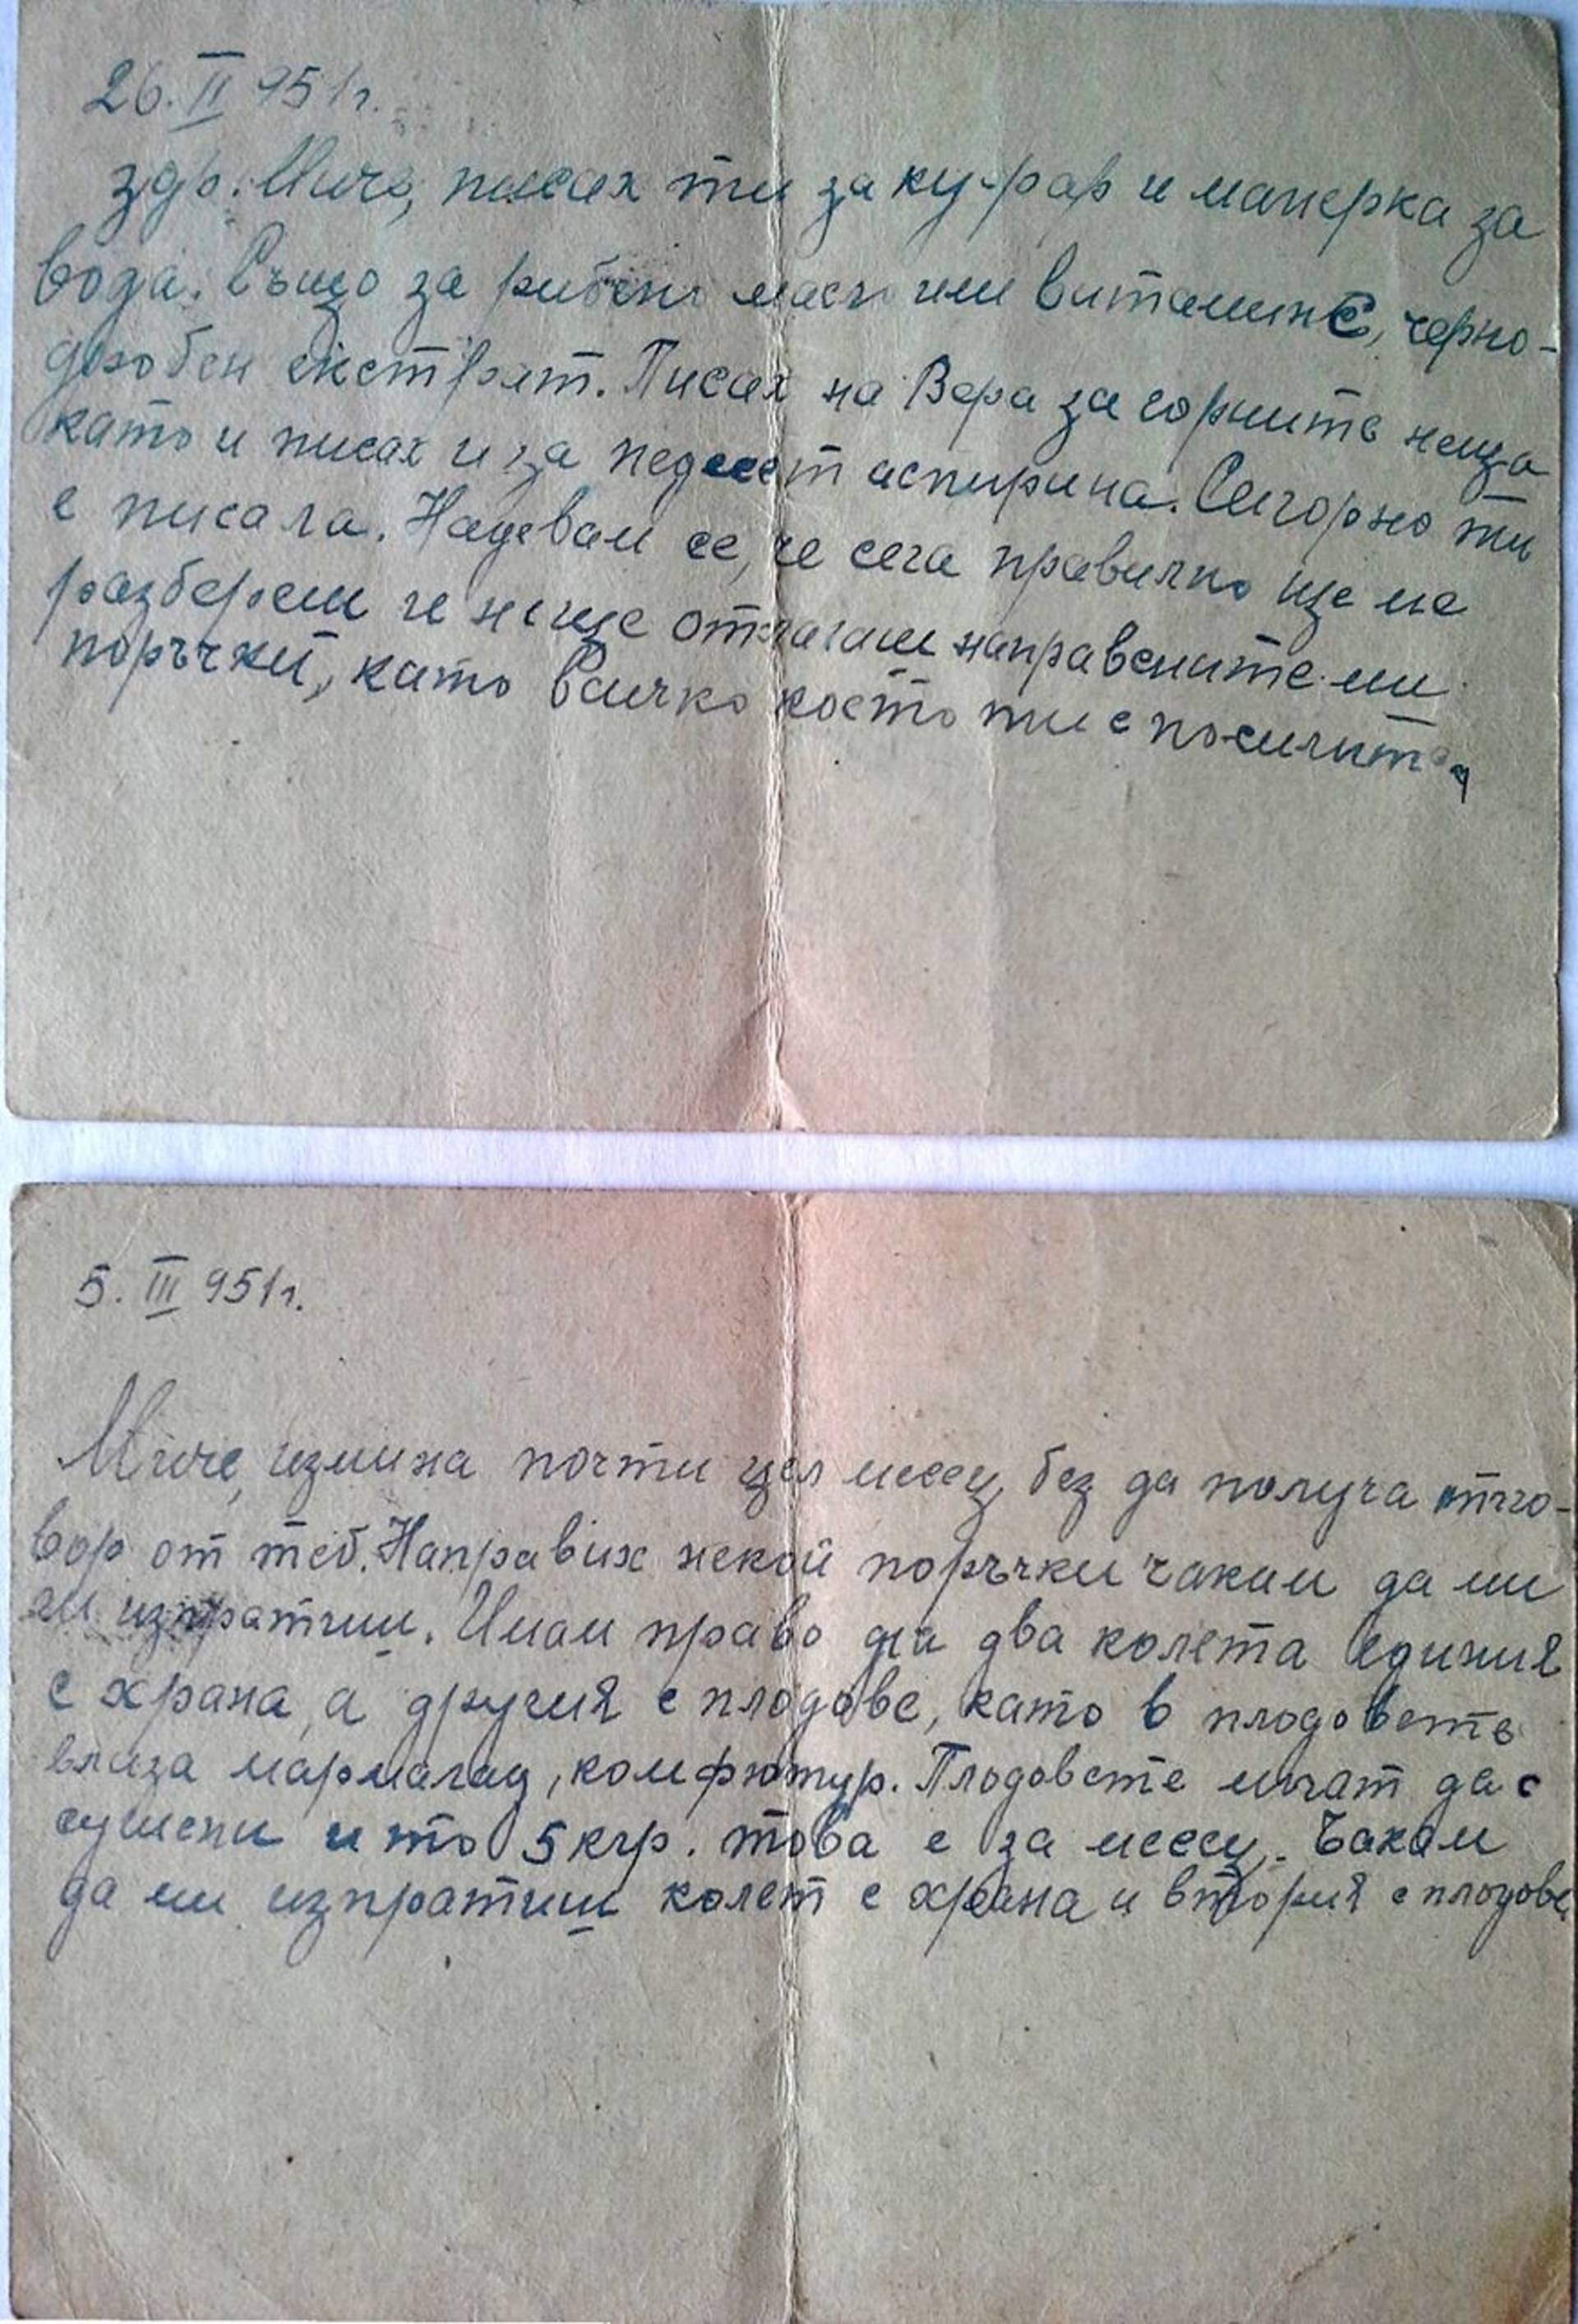 26. II 951г.
здр. Миче, писах ти за ку-фар и манерка за
вода. Също за рибено масло или витамин С, черно-
дробен екстракт. Писах на Вера за горните неща
като и писах и за педесет аспирина. Сигорно ти
е писала. Надевам се, че сега правилно ще ме
разбереш че не ще отлагаш направените ми
поръчки, като всичко което ти е посилит
5. III 951г.
Миче, измина почти цел месец без да получа отго-
вор от теб. Направих некой поръчки чакам да ми
ги изпратиш. Имам право на два колета единия
с храна, а другия с плодове, като в плодовете
влиза мармалад, комфютур. Плодовете могат да с
сушени и то 5 кгр. това е за месец. Чакам
да ми изпратиш колет с храна и втория с плодове